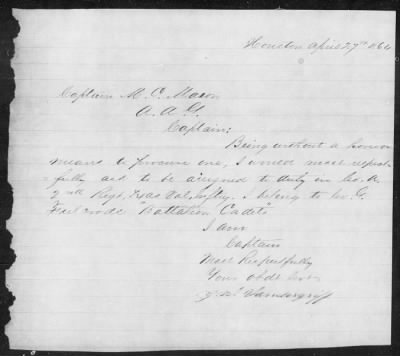 Houston April 27th 1864
Captain M. C. Mason
A. A. G.
Captain:
Being without a horse or
means to procure one, I would most respect-
fully ask to be assigned to duty in Co. A.
2nd Regt. Texas Vol. Infty. I belong to Co. G.
Battalion Cadets
I am
Captain
Most Respectfully
Your Obdt Svt
Vandergriff